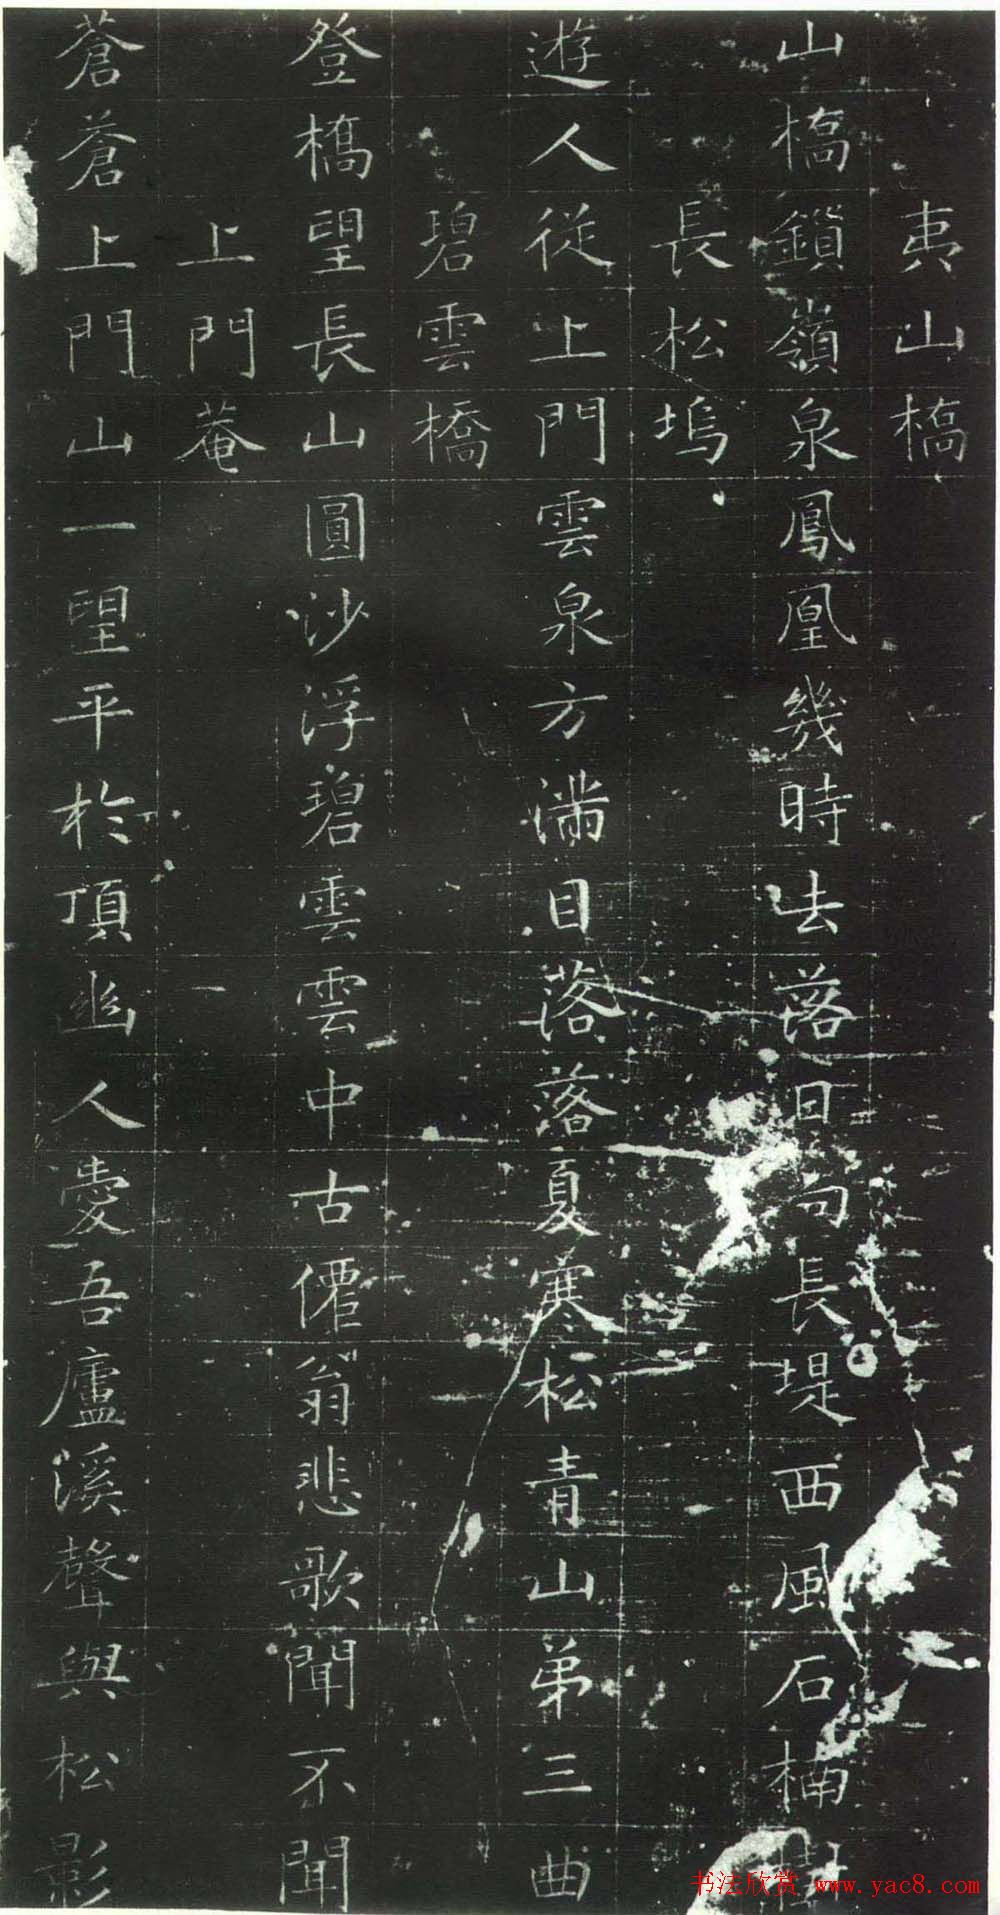 夷山橋
山橋鎖嶺泉鳳凰幾時去落日句長堤西風石楠樹
長松塢
遊人從上門雲泉方滿目落落夏寒松青山第三曲
碧雲橋
登橋望長山圓沙浮碧雲雲中古僊翁悲歌聞不聞
上門菴
蒼蒼上門山一望平於頂幽人愛吾廬溪聲與松影
书法欣赏 www.yac8.com